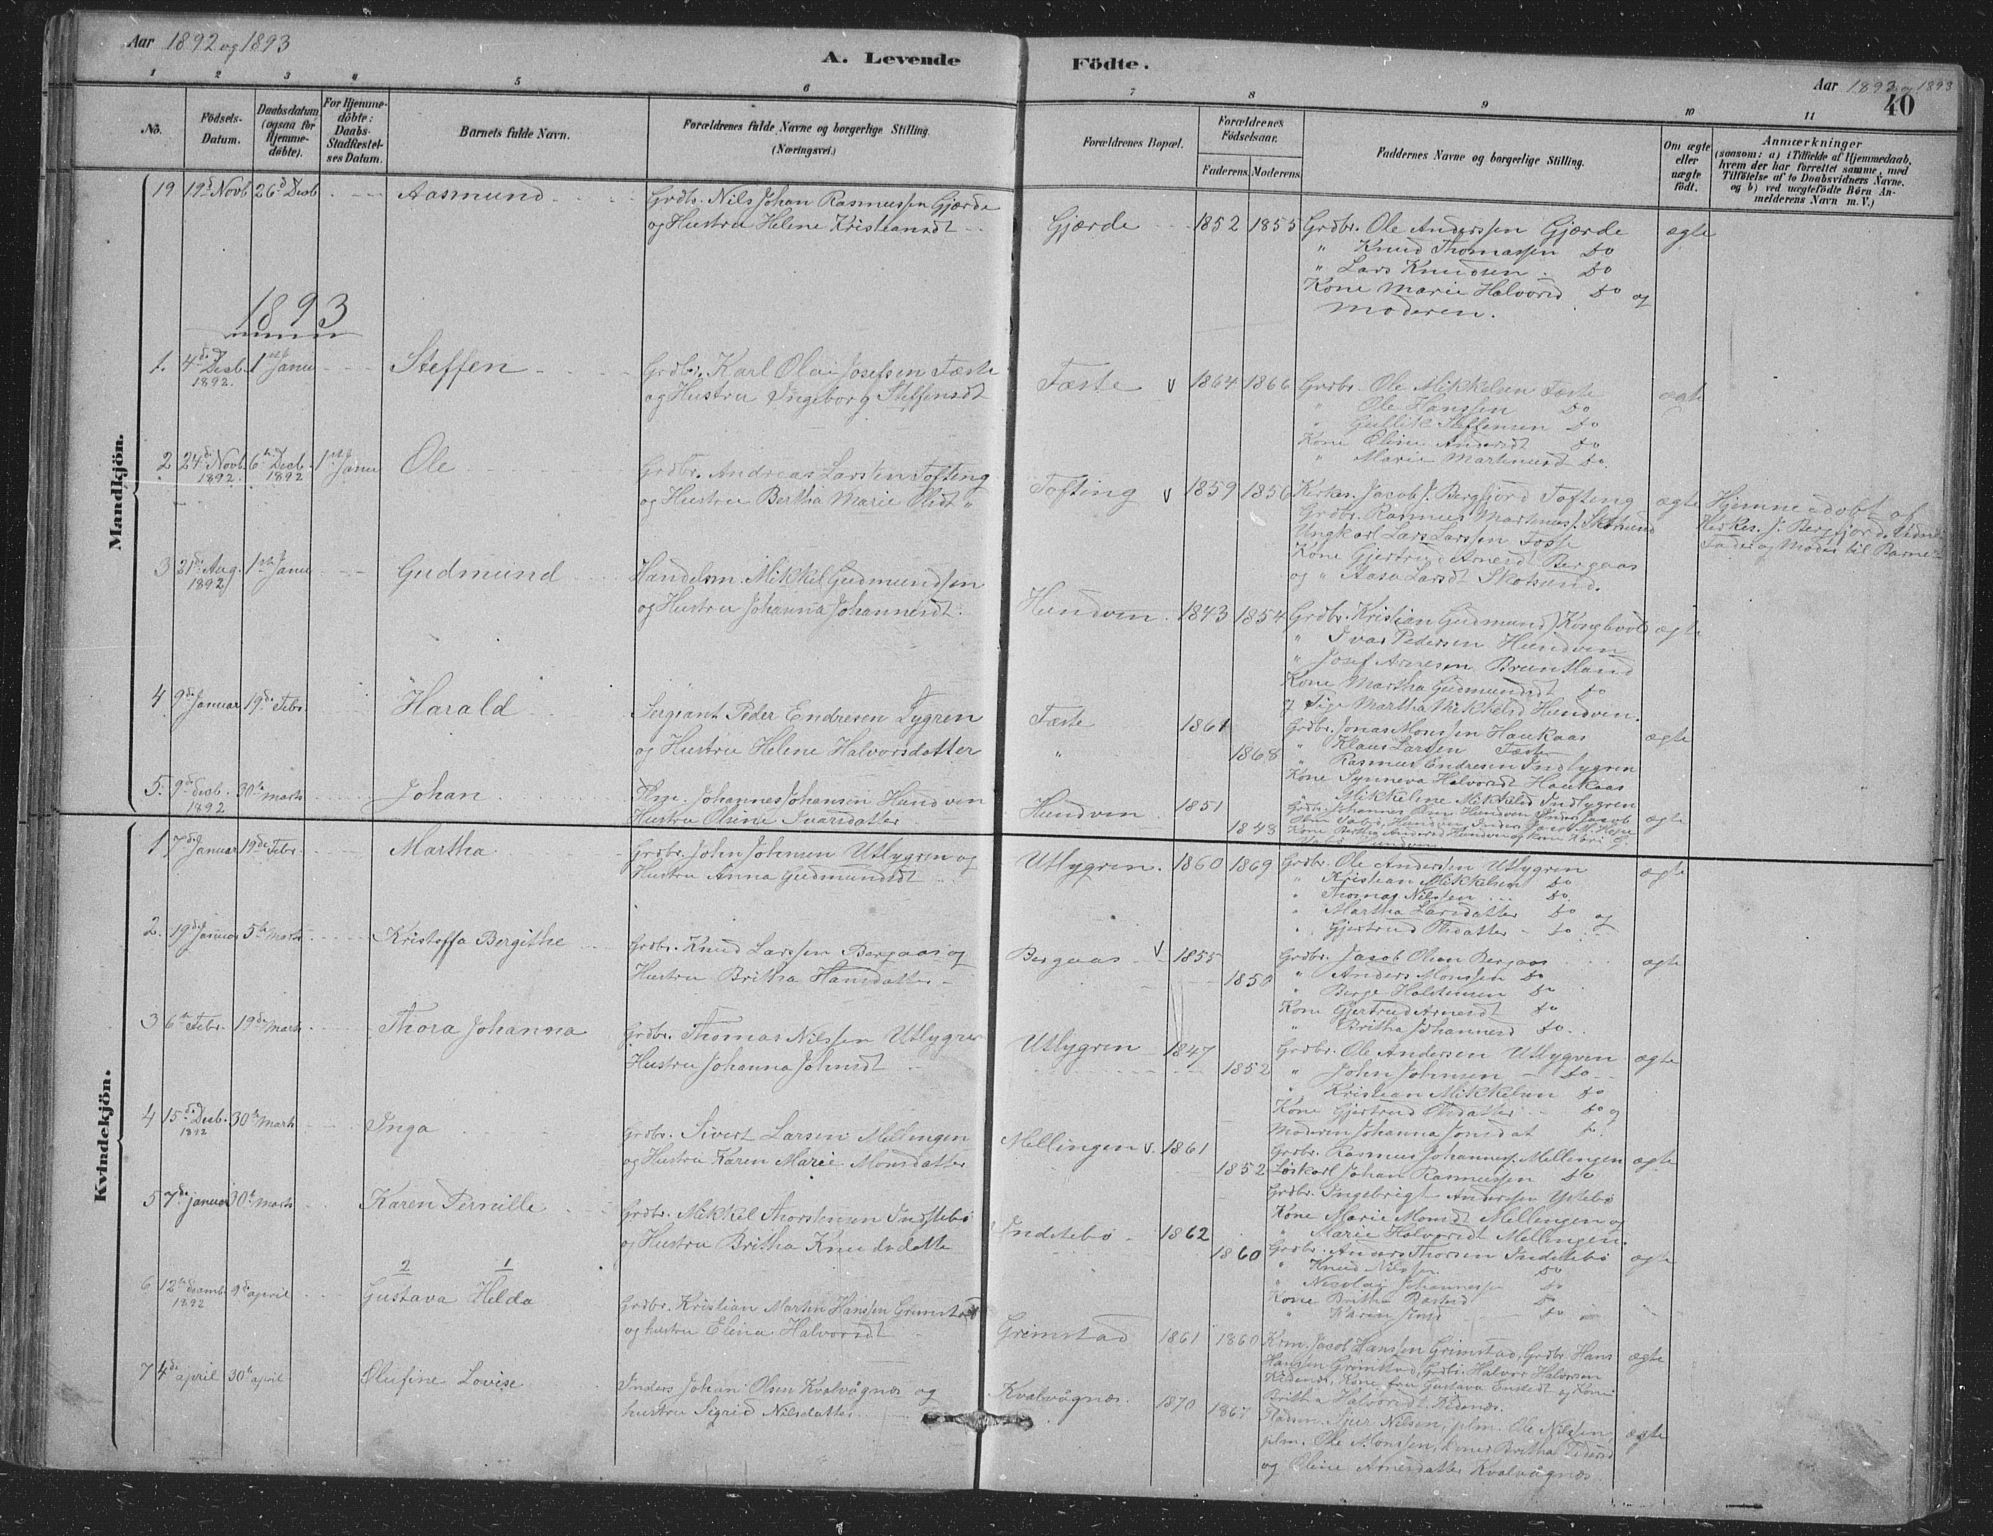 Aar 1892 og 1893
A. Levende Födte.
Aar 1892 og 1893
40
1 2 3 4 5 6 7 8 9 10 11
No.
Födsels-
Datum.
Daabsdatum
(ogsaa for
Hjemme-
døbte).
For Hjemme-
døbte:
Daabs-
Stadfæstel-
ses Datum.
Barnets fulde Navn.
Forældrenes fulde Navne og borgerlige Stilling.
(Næringsvei.)
Forældrenes Bopæl.
Forældrenes
Födselsaar.
Faderens. Moderens.
Faddernes Navne og borgerlige Stilling.
Om ægte
eller
uægte
født.
Anmærkninger
(saasom: a) i Tilfælde af Hjemmedaab,
hvem der har forrettet samme, med
Tilføielse af to Daabsvidners Navne,
og b) ved uægtefødte Børn An-
melderens Navn m. V.)
Mandkjön.
19 19d Novb 26d Desb Aasmund
Grdbr. Nils Johan Rasmussen Gjærde
og Hustru Helene Kristiansdt
Gjærde 1852 1855
Grdbr. Ole Anderssen Gjærde
" Knud Thomassen Do
" Lars Knudsen Do
Kone Marie Halvorsd Do og
Moderen.
ægte
1893
1. 4de Desb. 1892. 1ste Janu Steffen
Grdbr. Karl Olai Josefsen Fæste
og Hustru Ingeborg Steffensdt
Fæste v 1864 1866
Grdbr. Ole Mikkelsen Fæste
" Ole Hanssen Do
" Gullik Steffensen Do
Kone Oline Andersdt Do
" Marie Martinusd Do.
ægte
2. 24de Novb. 1892. 6te Desb. 1892 1ste Janu Ole
Grdbr. Andreas Larssen Tofting
og Hustru Bertha Marie Olsdt "
Tofting v 1859 1856
Kirkes. Jacob J. Bergfjord Tofting
Grdbr. Rasmus Martinus J. Skotsund
Ungkarl Lars Larssen Fosse
Kone Gjertrud Arnesdt Bergaas
og " Aasa Larsdt Skotsund.
ægte
Hjemmedøbt af
Kirkes. J. Bergfjord. Vidne
Fader og Moder til Barnet
3 21de Aug. 1892 1ste Janu Gudmund
Handelsm. Mikkel Gudmundsen
og Hustru Johanna Johannesdt.
Hundven. 1843 1854
Grdbr. Kristian Gudmunds) Kongsvold
" Ivar Pedersen Hundven
" Josef Arnesen Bruntland
Kone Martha Gudmundsdt Do
og Pige Martha Mikkelsd Hundven.
ægte
4 9de Januar 19de Febr. Harald
Sergeant Peder Endresen Lygren
og Hustru Helene Halvorsdatter
Fæste 1861
" 1868
Grdbr. Jonas Monssen Haukaas
" Klaus Larssen Fæste
" Rasmus Endresen Indlygren
Kone Synneva Halvorsdt Haukaas
" Mikkeline Mikkelsd Indlygren
ægte
5. 9de Desb. 1892 30te Marts Johan
Plm. Johannes Johansen Hundven
Hustru Olsine Ivarsdatter
Hundven 1851
1843
ægte
Kvindekjön.
1 7de Januar 19de Febr. Martha
Grdbr. John Johnsen Utlygren og
Hustru Anna Gudmundsdt
Utlygren. 1860 1869
Grdbr. Ole Andersen Utlygren
" Kristian Mikkelsen Do
" Thomas Nilssen Do.
" Martha Larsdatter Do og
" Gjertrud Olsdatter Do.
ægte
2. 19de Januar 5te Marts Kristoffa Bergithe
Grdbr. Knud Larssen Bergaas og
Hustru Britha Hansdatter
Bergaas v 1855
1850
Grdbr. Jacob Olsen Bergaas
" Anders Monssen Do
" Berge Halstensen Do
Kone Gjertrud Arnesdt Do
" Britha Johannesd Do.
ægte
3 6te Febr. 19de Marts Thora Johanna
Grdbr. Thomas Nilssen Utlygren
Hustru Johanna Johnsdt
Utlygren 1847
1852
Grdbr. Ole Andersen Utlygren
" John Johnsen Do.
" Kristian Mikkelsen Do
Kone Gjertrud Olsdatter Do og
Moderen Johanna Jonsdat
ægte
4 15de Desb. 1892 30te Marts Inga
Grdbr. Sivert Larsen Mellingen
og Hustru Karen Marie Monsdatter
Mellingen v. 1861
1852
Grdbr. Rasmus Johannes J. Mellingen
Løskarl Johan Rasmussen Do
Grdbr. Ingebrigt Anderssen Ystebø
Kone Marie Monsdt Mellingen og
" Marie Halvorsdt Mellingen.
ægte
5 7de januar 30te Marts Karen Pernille
Grdbr. Mikkel Thorstensen Indstebø
og Hustru Britha Knudsdatte
Indstebø 1862
1860
Grdbr. Anders Thorsen Indstebø
" Knud Nilssen Do
" Nicolai Johannessen Do
Kone Britha Rasmd Do
" Karin Jonsd Do
ægte
2 1
6 12te desemb. 1892 9de april Gustava Helda
Grdbr. Kristian Martin Hanssen Grimstad
og hustru Elina Halvorsdt
Grimstad 1861 1860
Krm. Jacob Hanssen Grimstad, Grdbr. Hans
Hansen Grimstad, Grdbr. Halvor Halvorsen
Kidenes, Kone fru Gustava Ensdt og Kone
Britha Halvorsdt Kidenes.
ægte
7 4de april 30te april Olufine Lovise
Inders Johan Olsen Kvalvågnæs og
hustru Sigrid Nilsdatter
Kvalvågnæs. 1870 1867
Sjur Nilsen, plm. Ole Nilsen,
plm. Ole Monssen, koner Britha
og Oline Arnesdatter Kvalvågnæs.
ægte